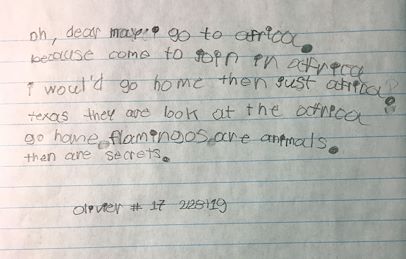 oh, dear go to africa.
because come to join in africa
i would'd go home then just africa?
texas they are look at the africa
go home. flamingos are animals.
then are secrets.
olivier # 17 2/25/19